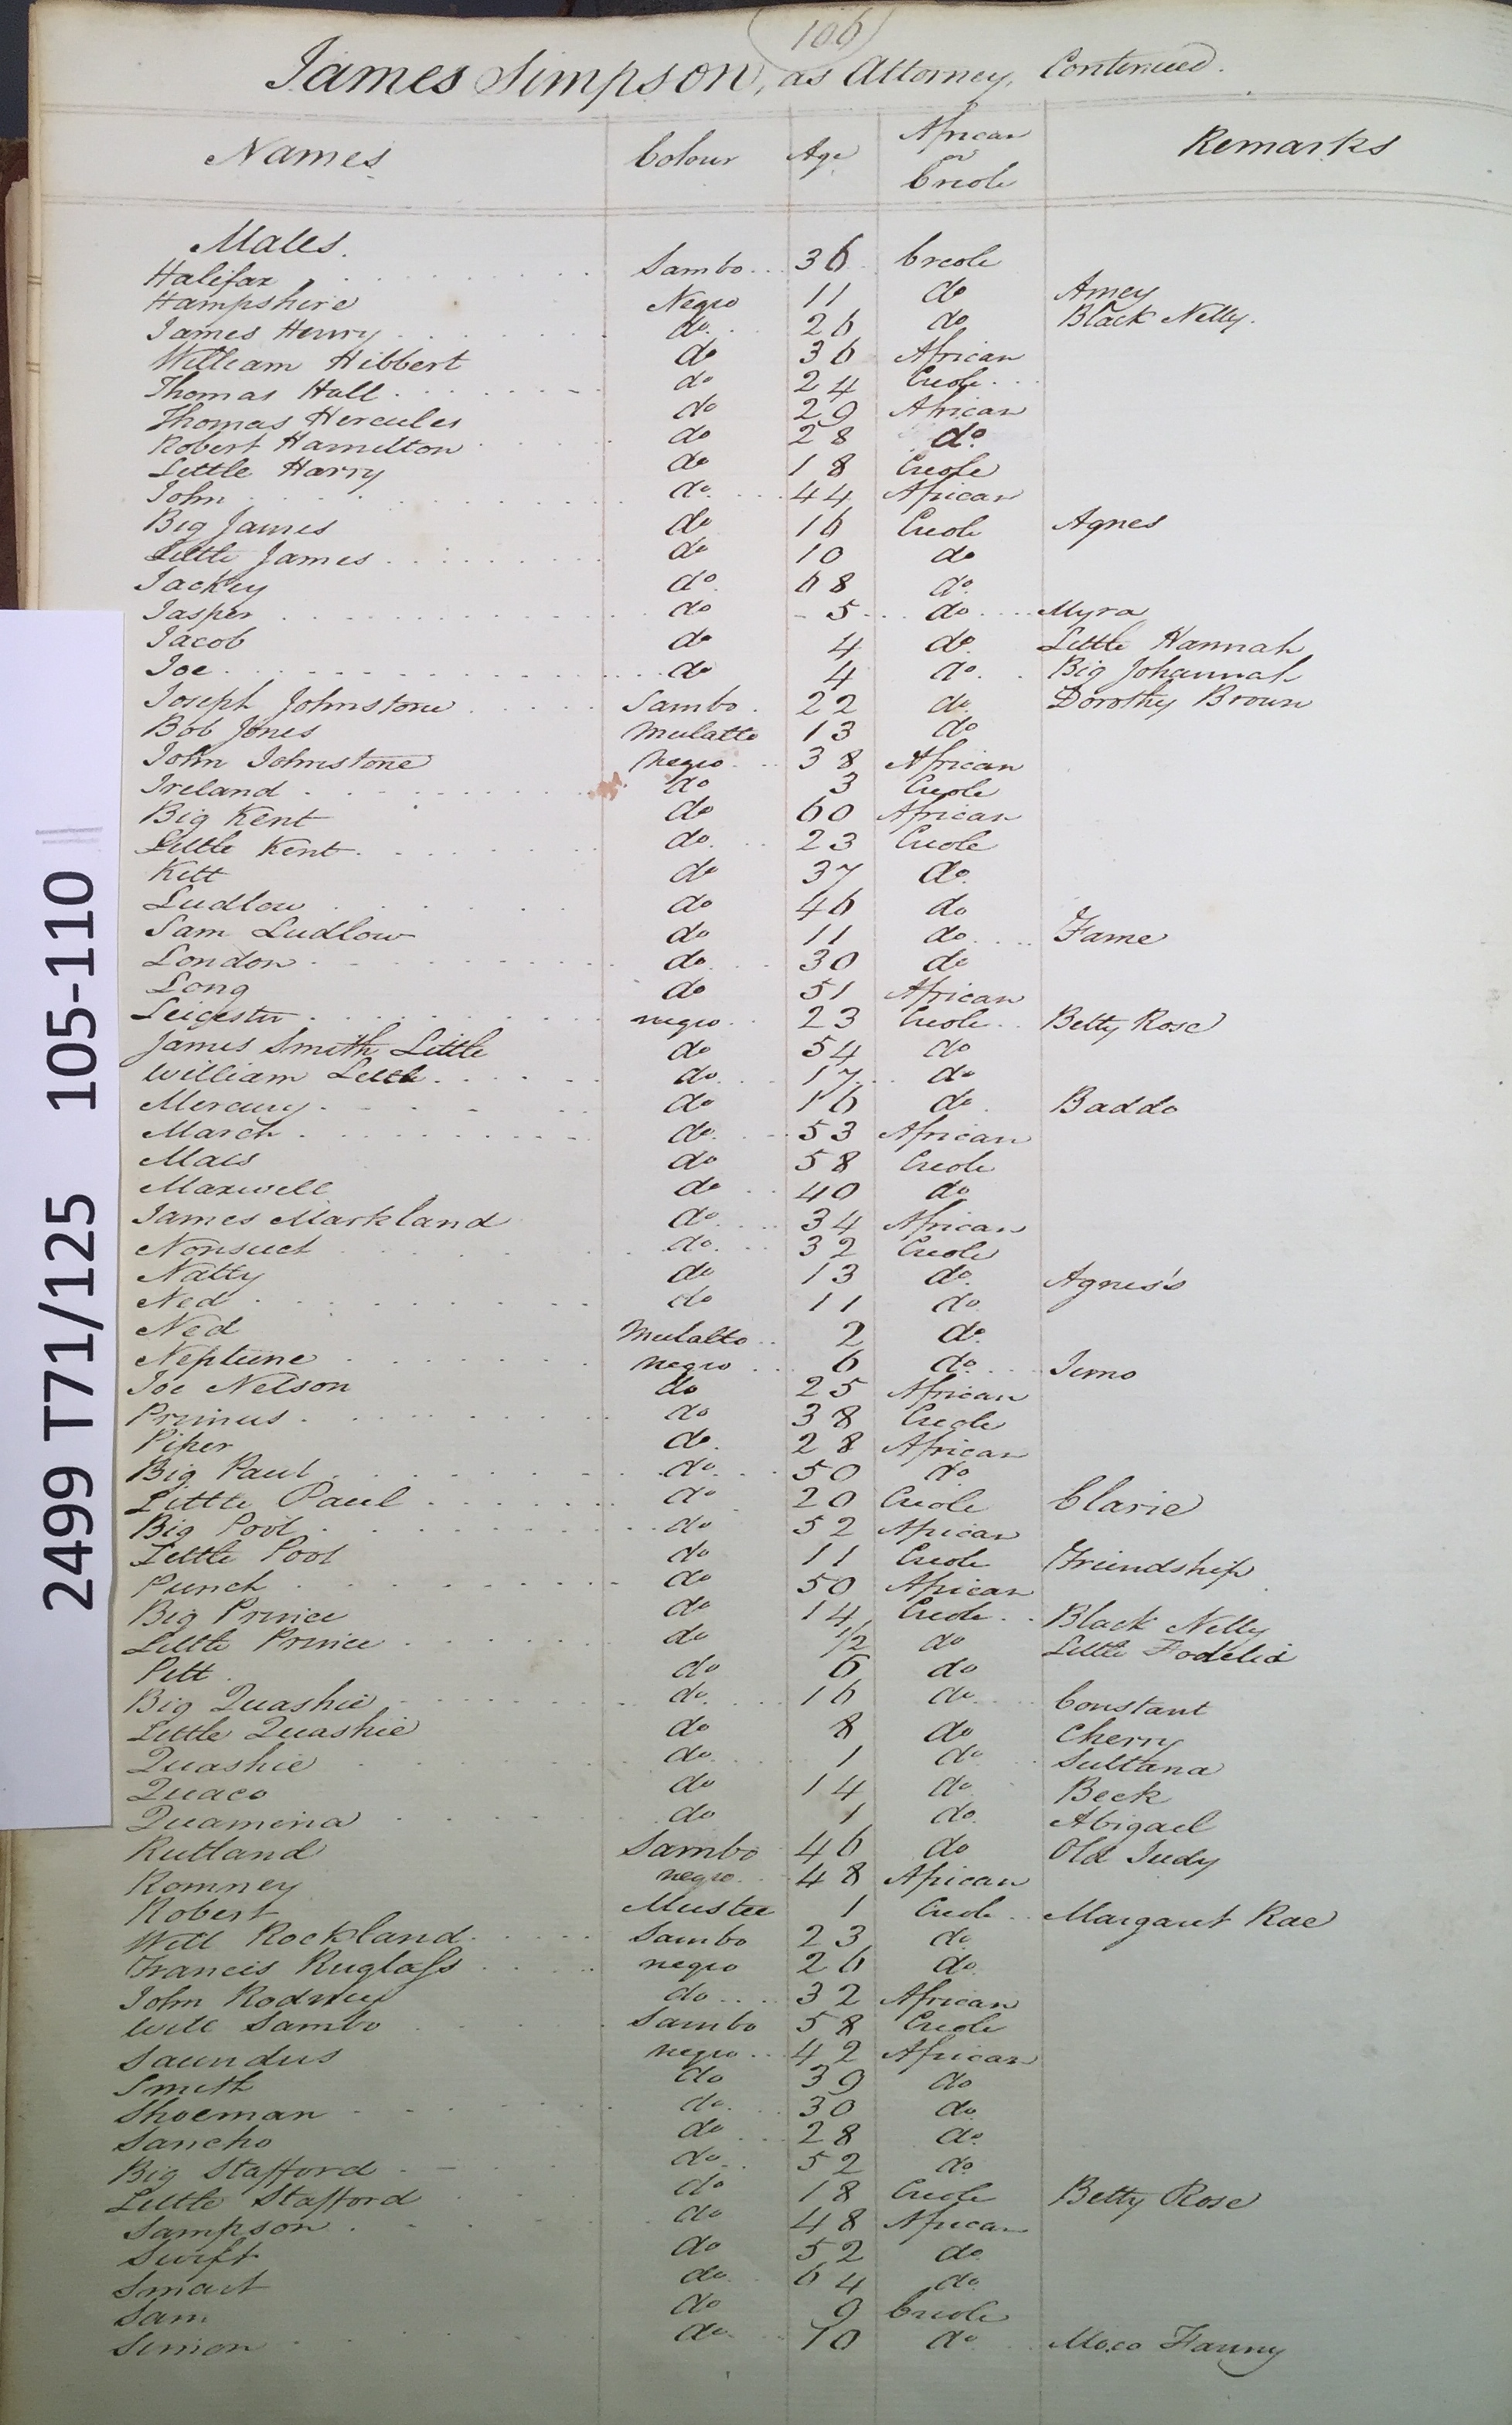 106
James Simpson, as Attorney, Continued.
Names Colour Age African or Creole Remarks
Males.
Halifax Sambo 36 Creole
Hampshire Negro 11 do Amey
James Henry do 26 do Black Nelly.
William Hibbert do 36 African
Thomas Hall do 24 Creole
Thomas Hercules do 29 African
Robert Hamilton do 28 do
Little Harry do 18 Creole
John do 44 African
Big James do 16 Creole Agnes
Little James do 10 do
Jackey do 68 do
Jasper do 5 do Myra
Jacob do 4 do Little Hannah
Joe do 4 do Big Johannah
Joseph Johnstone Sambo 22 do Dorothy Brown
Bob Jones Mulatto 13 do
John Johnstone Negro 38 African
Ireland do 3 Creole
Big Kent do 60 African
Little Kent do 23 Creole
Kitt do 37 do
Ludlow do 46 do
Sam Ludlow do 11 do Fame
London do 30 do
Long do 51 African
Leicester negro 23 Creole Betty Rose
James Smith Little do 54 do
William Little do 17 do
Mercury do 16 do Baddo
March do 53 African
Mars do 58 Creole
Maxwell do 40 do
James Markland do 34 African
Nonsuch do 32 Creole
Natty do 13 do Agnes's
Ned do 11 do
Ned Mulatto 2 do
Neptune negro 6 do Juno
Joe Nelson do 25 African
Primus do 38 Creole
Piper do 28 African
Big Paul do 50 do
Little Paul do 20 Creole Clarie
Big Pool do 52 African
Little Pool do 11 Creole Friendship
Punch do 50 African
Big Prince do 14 Creole Black Nelly
Little Prince do 1/2 do Little Fodelia
Pitt do 6 do
Big Quashie do 16 do Constant
Little Quashie do 8 do Cherry
Quashie do 1 do Sultana
Quaco do 14 do Beck
Quamina do 1 do Abigael
Rutland Sambo 46 do Old Judy
Romney negro 48 African
Robert Mustee 1 Creole Margaret Rae
Will Rockland Sambo 23 do
Francis Ruglass negro 26 do
John Rodney do 32 African
Will Sambo Sambo 58 Creole
Saunders negro 42 African
Smith do 39 do
Shoeman do 30 do
Sancho do 28 do
Big Stafford do 52 do
Little Stafford do 18 Creole Betty Rose
Sampson do 48 African
Swift do 52 do
Smart do 64 do
Sam do 9 Creole
Simon do 70 do Moco Fanny
2499 T71/125 105-110